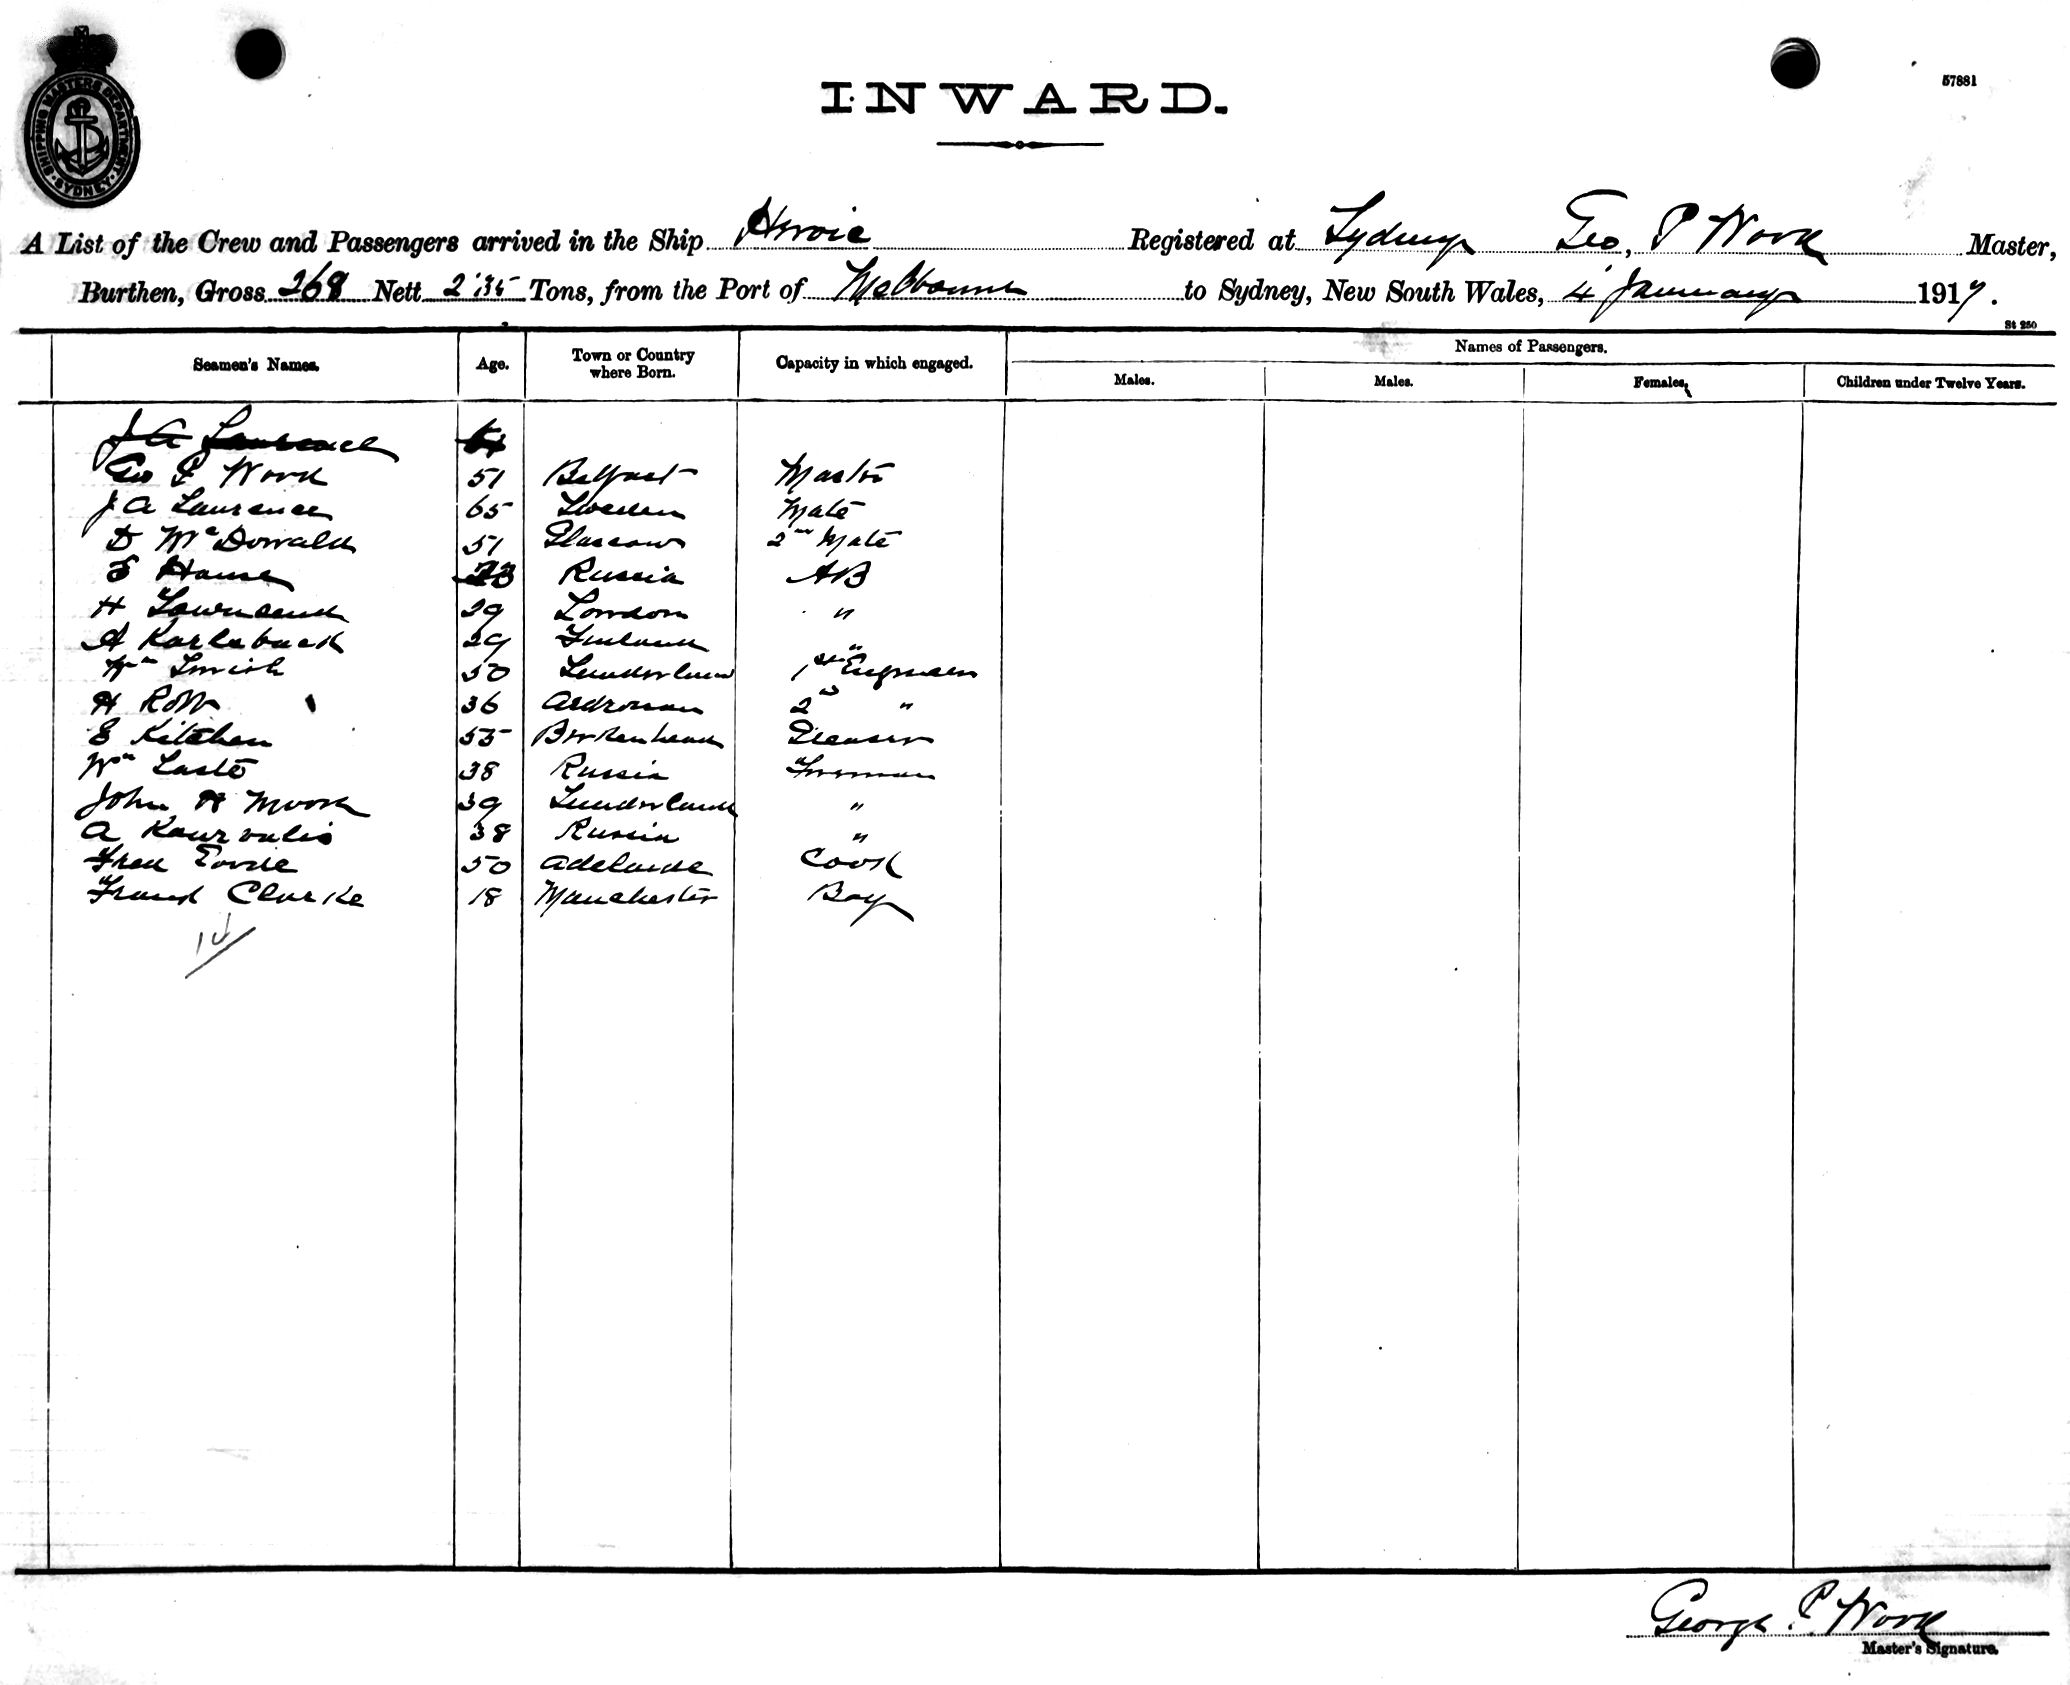 SHIPPING MASTERS DEPARTMENT · SYDNEY ·
57881
INWARD.
A List of the Crew and Passengers arrived in the Ship Heroic Registered at Sydney Geo, P Wood Master,
Burthen, Gross 268 Nett Tons, from the Port of Melbourne to Sydney, New South Wales, 4 January 1917.
St 250
Seamen's Names. Age. Town or Country where Born. Capacity in which engaged. Names of Passengers.
Males. Males. Females. Children under Twelve Years.
J A Laurence
Geo P Wood 51 Belfast Master
J A Laurence 65 Sweden Mate
D McDonald 51 Glascow 2nd Mate
Russia AB
H Townsend 29 London "
A Karleback 29 Finland "
Wm Smith 50 Sunderland 1st Engineer
H Ross 36 Ardrossan 2nd "
E Kitchen 55 Birkenhead Greaser
Wm 38 Russia Fireman
John H Moore 39 Sunderland "
A 38 Russia "
Fred 50 Adelaide Cook
Frank Clarke 18 Manchester Boy
14
George P Wood
Master's Signature.